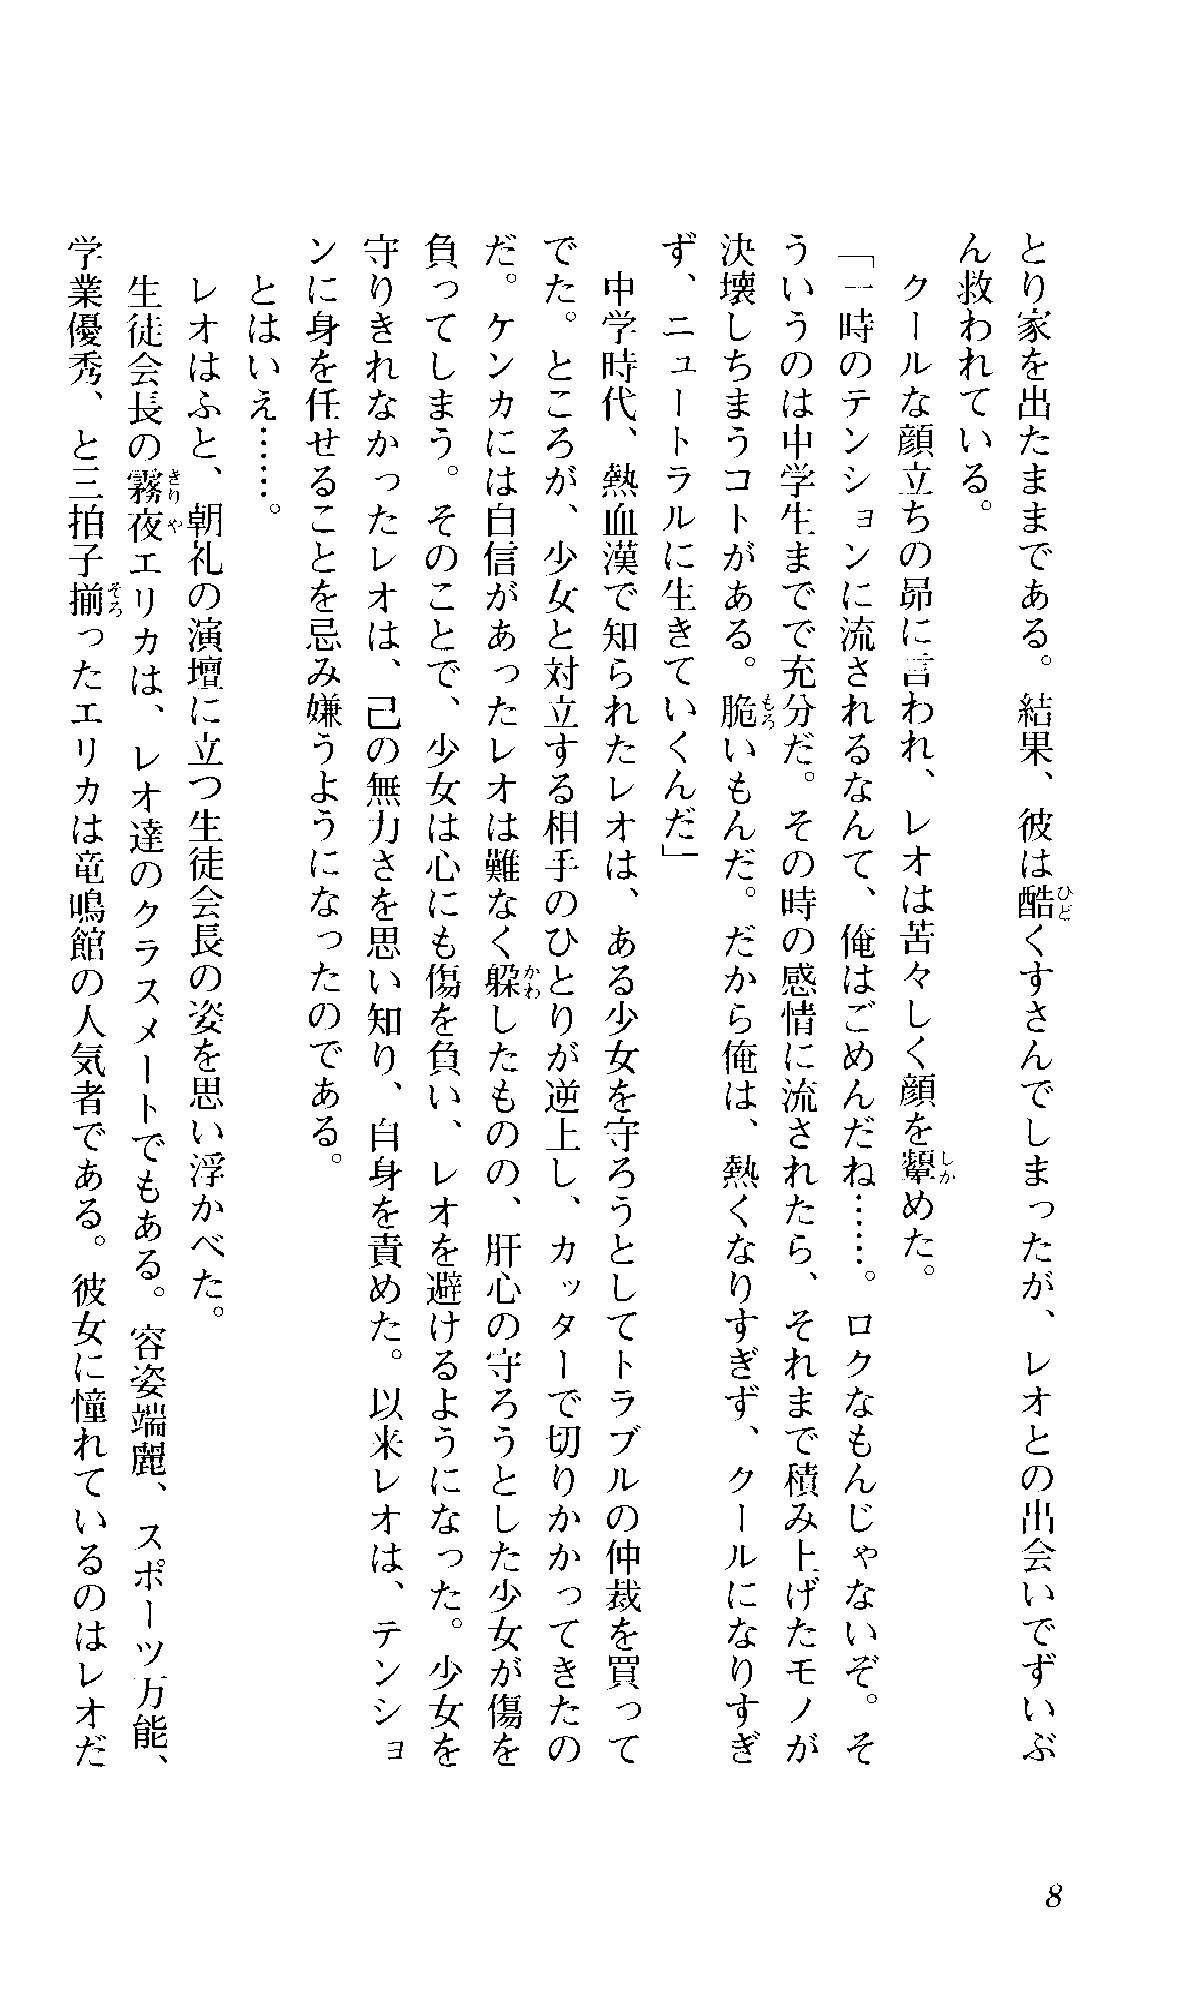 とり家を出たままである。結果、彼は酷くすさんでしまったが、レオとの出会いでずいぶ
ん救われている。
クールな顔立ちの昴に言われ、レオは苦々しく顔を顰めた。
「一時のテンションに流されるなんて、俺はごめんだね……。ロクなもんじゃないぞ。そ
ういうのは中学生までで充分だ。その時の感情に流されたら、それまで積み上げたモノが
決壊しちまうコトがある。脆いもんだ。だから俺は、熱くなりすぎず、クールになりすぎ
ず、ニュートラルに生きていくんだ」
中学時代、熱血漢で知られたレオは、ある少女を守ろうとしてトラブルの仲裁を買って
でた。ところが、少女と対立する相手のひとりが逆上し、カッターで切りかかってきたの
だ。ケンカには自信があったレオは難なく躱したものの、肝心の守ろうとした少女が傷を
負ってしまう。そのことで、少女は心にも傷を負い、レオを避けるようになった。少女を
守りきれなかったレオは、己の無力さを思い知り、自身を責めた。以来レオは、テンショ
ンに身を任せることを忌み嫌うようになったのである。
とはいえ……。
レオはふと、朝礼の演壇に立つ生徒会長の姿を思い浮かべた。
生徒会長の霧夜エリカは、レオ達のクラスメートでもある。容姿端麗、スポーツ万能、
学業優秀、と三拍子揃ったエリカは竜鳴館の人気者である。彼女に憧れているのはレオだ
8